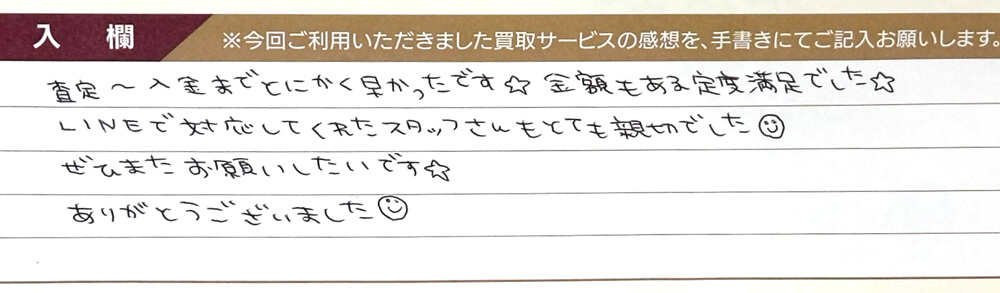 入 欄 ※今回ご利用いただきました買取サービスの感想を、手書きにてご記入お願いします。
査定〜入金までとにかく早かったです☆ 金額もある定度満足でした☆
LINEで対応してくれたスタッフさんもとても親切でした☺
ぜひまたお願いしたいです☆
ありがとうございました☺